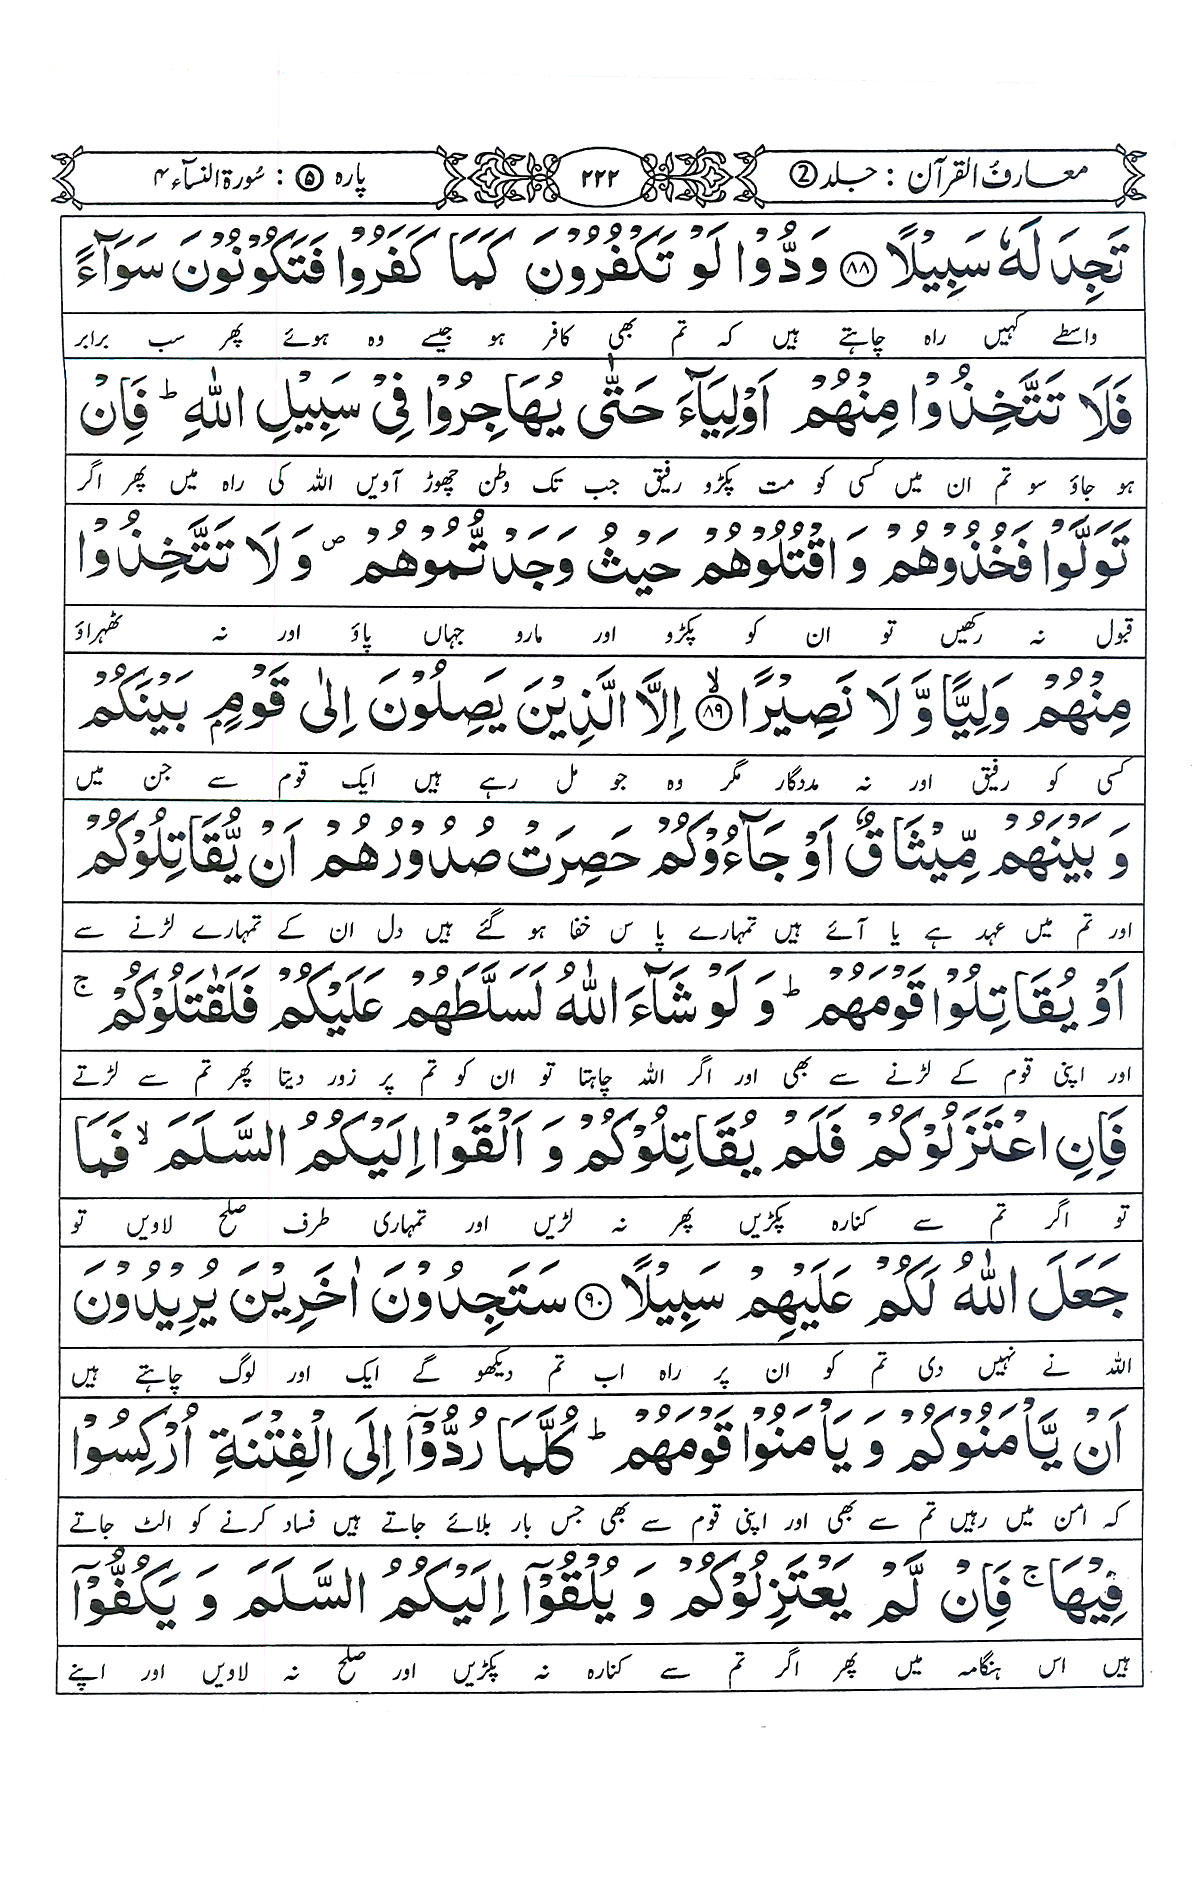 معارف القرآن : جلد ②
۲۲۲
پارہ ⑤ : سُورۃ النسآء ۴
تَجِدَ لَهٗ سَبِیْلًا ﴿۸۸﴾ وَدُّوْا لَوْ تَكْفُرُوْنَ كَمَا كَفَرُوْا فَتَكُوْنُوْنَ سَوَآءً
واسطے کہیں راہ چاہتے ہیں کہ تم بھی کافر ہو جیسے وہ ہوئے پھر سب برابر
فَلَا تَتَّخِذُوْا مِنْهُمْ اَوْلِیَآءَ حَتّٰی یُهَاجِرُوْا فِیْ سَبِیْلِ اللّٰهِ ؕ فَاِنْ
ہو جاؤ سو تم ان میں کسی کو مت پکڑو رفیق جب تک وطن چھوڑ آویں اللہ کی راہ میں پھر اگر
تَوَلَّوْا فَخُذُوْهُمْ وَ اقْتُلُوْهُمْ حَیْثُ وَجَدْتُّمُوْهُمْ ۪ وَ لَا تَتَّخِذُوْا
قبول نہ رکھیں تو ان کو پکڑو اور مارو جہاں پاؤ اور نہ ٹھہراؤ
مِنْهُمْ وَلِیًّا وَّ لَا نَصِیْرًا ﴿ۙ۸۹﴾ اِلَّا الَّذِیْنَ یَصِلُوْنَ اِلٰی قَوْمٍۭ بَیْنَكُمْ
کسی کو رفیق اور نہ مددگار مگر وہ جو مل رہے ہیں ایک قوم سے جن میں
وَ بَیْنَهُمْ مِّیْثَاقٌ اَوْ جَآءُوْكُمْ حَصِرَتْ صُدُوْرُهُمْ اَنْ یُّقَاتِلُوْكُمْ
اور تم میں عہد ہے یا آئے ہیں تمہارے پا س خفا ہو گئے ہیں دل ان کے تمہارے لڑنے سے
اَوْ یُقَاتِلُوْا قَوْمَهُمْ ؕ وَ لَوْ شَآءَ اللّٰهُ لَسَلَّطَهُمْ عَلَیْكُمْ فَلَقٰتَلُوْكُمْ ۚ
اور اپنی قوم کے لڑنے سے بھی اور اگر اللہ چاہتا تو ان کو تم پر زور دیتا پھر تم سے لڑتے
فَاِنِ اعْتَزَلُوْكُمْ فَلَمْ یُقَاتِلُوْكُمْ وَ اَلْقَوْا اِلَیْكُمُ السَّلَمَ ۙ فَمَا
تو اگر تم سے کنارہ پکڑیں پھر نہ لڑیں اور تمہاری طرف صلح لاویں تو
جَعَلَ اللّٰهُ لَكُمْ عَلَیْهِمْ سَبِیْلًا ﴿۹۰﴾ سَتَجِدُوْنَ اٰخَرِیْنَ یُرِیْدُوْنَ
اللہ نے نہیں دی تم کو ان پر راہ اب تم دیکھو گے ایک اور لوگ چاہتے ہیں
اَنْ یَّاْمَنُوْكُمْ وَ یَاْمَنُوْا قَوْمَهُمْ ؕ كُلَّمَا رُدُّوْۤا اِلَی الْفِتْنَةِ اُرْكِسُوْا
کہ امن میں رہیں تم سے بھی اور اپنی قوم سے بھی جس بار بلائے جاتے ہیں فساد کرنے کو الٹ جاتے
فِیْهَا ۚ فَاِنْ لَّمْ یَعْتَزِلُوْكُمْ وَ یُلْقُوْۤا اِلَیْكُمُ السَّلَمَ وَ یَكُفُّوْۤا
ہیں اس ہنگامہ میں پھر اگر تم سے کنارہ نہ پکڑیں اور صلح نہ لاویں اور اپنے